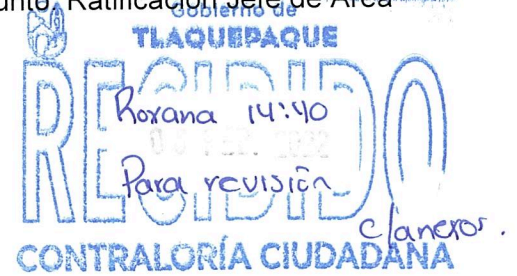 unto: Ratificación Jefe de Área
Gobierno de
TLAQUEPAQUE
RECIBIDO
Roxana 14:40
Para revisión
c/anexos.
CONTRALORÍA CIUDADANA